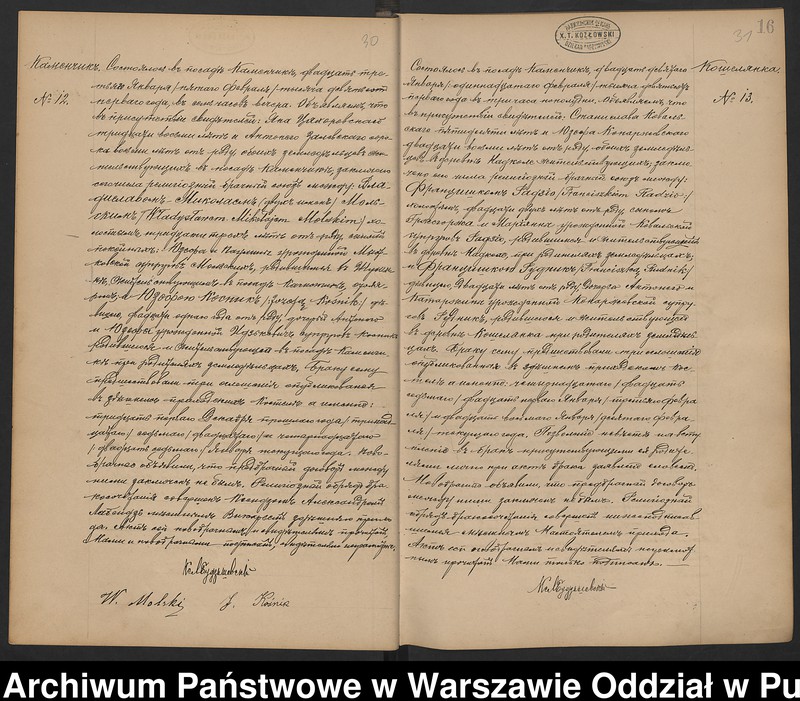 30
Каменчикъ.
№ 12.
Состоялось въ посадѣ Каменчикъ, двадцать тре-
тьяго Января /пятаго Февраля/ тысяча девятьсотъ
перваго года, въ семь часовъ вечера. Объявляемъ, что
въ присутствіи свидѣтелей: Яна
тридцати восьми лѣтъ и Антонія Залевскаго соро-
ка восьми лѣтъ отъ роду, обоихъ земледѣльцевъ жи-
тельствующихъ въ посадѣ Каменчикъ, заключенъ
сего числа религіозный брачный союзъ между: Вла-
диславомъ - Миколаемъ /двухъ именъ/ Моль-
скимъ /Władysławem Mikołajem Molskim/ хо-
лостымъ, тридцати трехъ лѣтъ отъ роду, сыномъ
покойныхъ: Юзефа и
супруговъ Мольскихъ, родившимся въ
жительствующимъ въ посадѣ Каменчикъ,
и Юзефою Косникъ /Józefą Kośnik/ дѣ-
вицею, двадцати одного года отъ роду, дочерью
и Юзефы урожденной супруговъ Косникъ
родившеюся и жительствующею въ посадѣ Каменчи-
къ при родителяхъ земледѣльцахъ. Браку сему
предшествовали три оглашенія опубликованныя
въ здѣшнемъ приходскомъ костелѣ а именно:
тридцать перваго Декабря прошлаго года /тринад-
цатаго/ седьмаго /двадцатаго/ и четырнадцатаго
/двадцать седьмаго/ Января текущаго года. Ново-
брачные объявили, что предбрачный договоръ между
ними заключенъ не былъ. Религіозный обрядъ бра-
косочетанія совершенъ Ксендзомъ Александромъ
мѣстнымъ Викаріемъ здѣшняго прихо-
да. Актъ сей новобрачнымъ и свидѣтелямъ прочитанъ,
Нами и новобрачными подписанъ, свидѣтели неграмотны.
W. Molski J. Kośnik
31
16
X.T. KOZŁOWSKI
Кошелянка.
№ 13.
Состоялось въ посадѣ Каменчикъ, двадцать девятаго
Января /одиннадцатаго Февраля/ тысяча девятьсотъ
перваго года въ три часа пополудни. Объявляемъ, что
въ присутствіи свидѣтелей: Станислава Коваль-
скаго пятидесяти лѣтъ и Юзефа
двадцати восьми лѣтъ отъ роду, обоихъ земледѣль-
цевъ въ деревнѣ жительствующихъ, заклю-
ченъ сего числа религіозный брачный союзъ между:
Францишкомъ Радзіо /Franciszkiem Radzio/
холостымъ, двадцати двухъ лѣтъ отъ роду, сыномъ
и Маріанны урожденной Ковальской
супруговъ Радзіо, родившимся и жительствующимъ
въ деревнѣ при родителяхъ земледѣльцахъ,
и Францишкою Рудникъ /Franciszką Rudnik/
дѣвицею, двадцати лѣтъ отъ роду, дочерью Антонія и
Катаржины урожденной супру-
говъ Рудникъ, родившеюся и жительствующею
въ деревнѣ Кошелянка при родителяхъ земледѣль-
цахъ. Браку сему предшествовали три оглашенія
опубликованныя въ здѣшнемъ приходскомъ кос-
телѣ а именно: четырнадцатаго /двадцать
седьмаго/ двадцать перваго Января /третьяго Февра-
ля/ и двадцать восьмаго Января /десятаго Февра-
ля/ текущаго года. Позволеніе невѣстѣ на всту-
пленіе въ бракъ присутствующими ея родите-
лями лично при актѣ брака заявлено словесно.
Новобрачные объявили, что предбрачный договоръ
между ними заключенъ не былъ. Религіозный
обрядъ бракосочетанія совершенъ нижеподписав-
шимся мѣстнымъ Настоятелемъ прихода.
Актъ сей новобрачнымъ и свидѣтелямъ неграмот-
нымъ прочитанъ Нами только подписанъ.
Archiwum Państwowe w Warszawie Oddział w Pu